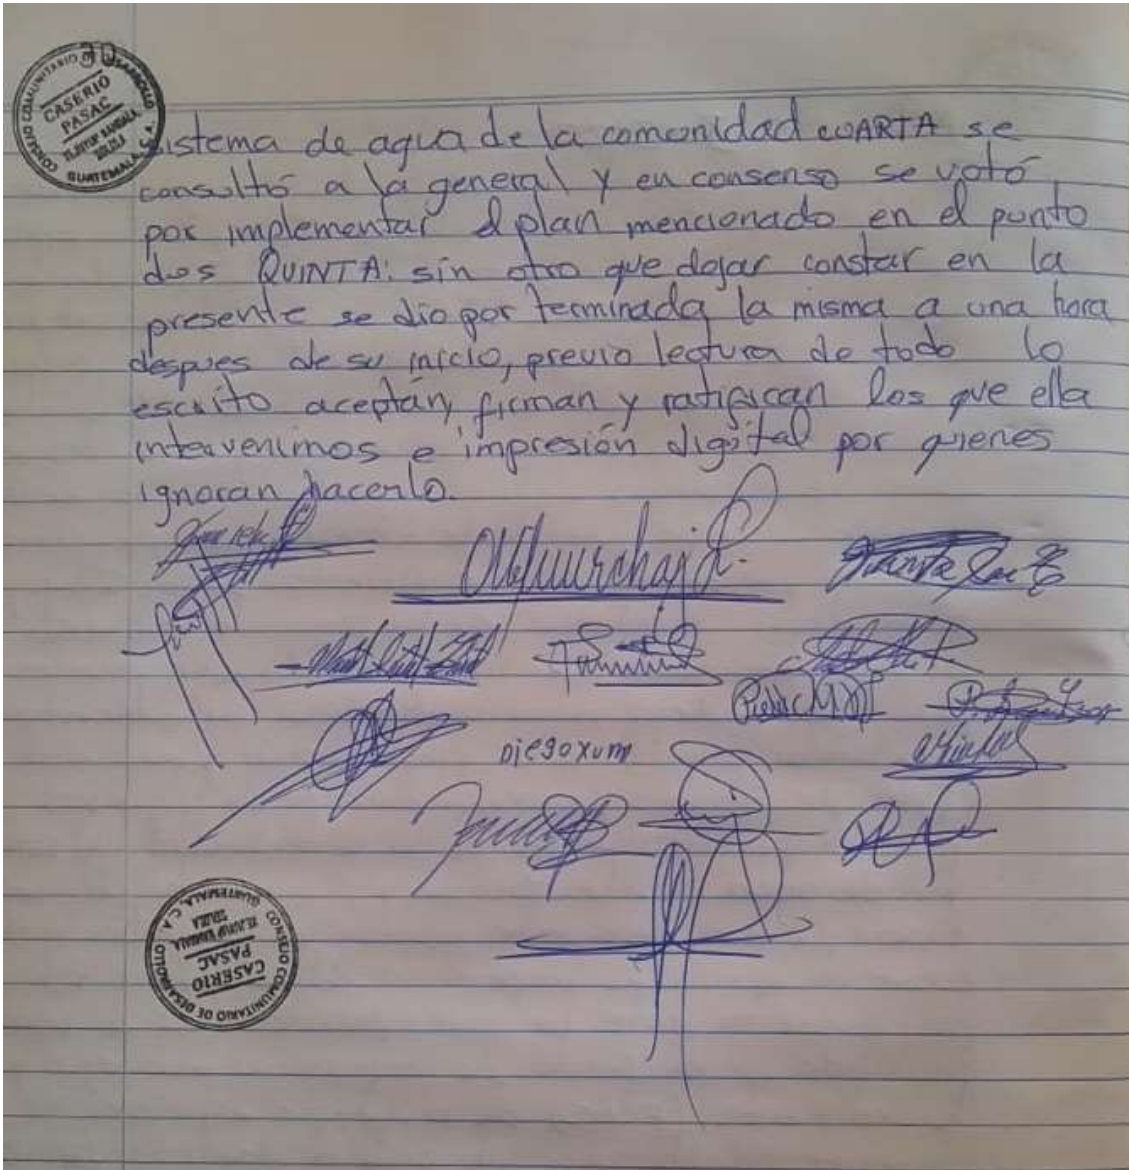 30
CONSEJO COMUNITARIO DE DESARROLLO
CASERIO
PASAC
SOLOLA
GUATEMALA, C. A.
sistema de agua de la comunidad CUARTA se
consultó a la general y en consenso se votó
por implementar el plan mencionado en el punto
dos QUINTA: sin otro que dejar constar en la
presente se dio por terminada la misma a una hora
despues de su inicio, previo lectura de todo lo
escrito aceptán, firman y ratifican los que ella
intervenimos e impresión digital por quienes
ignoran hacerlo.
Diego xum
CONSEJO COMUNITARIO DE DESARROLLO
CASERIO
PASAC
SOLOLA
GUATEMALA, C. A.